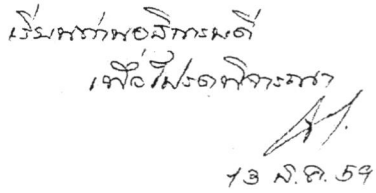 เรียนท่านอธิการบดี
เพื่อโปรดพิจารณา
13 ส.ค. 59